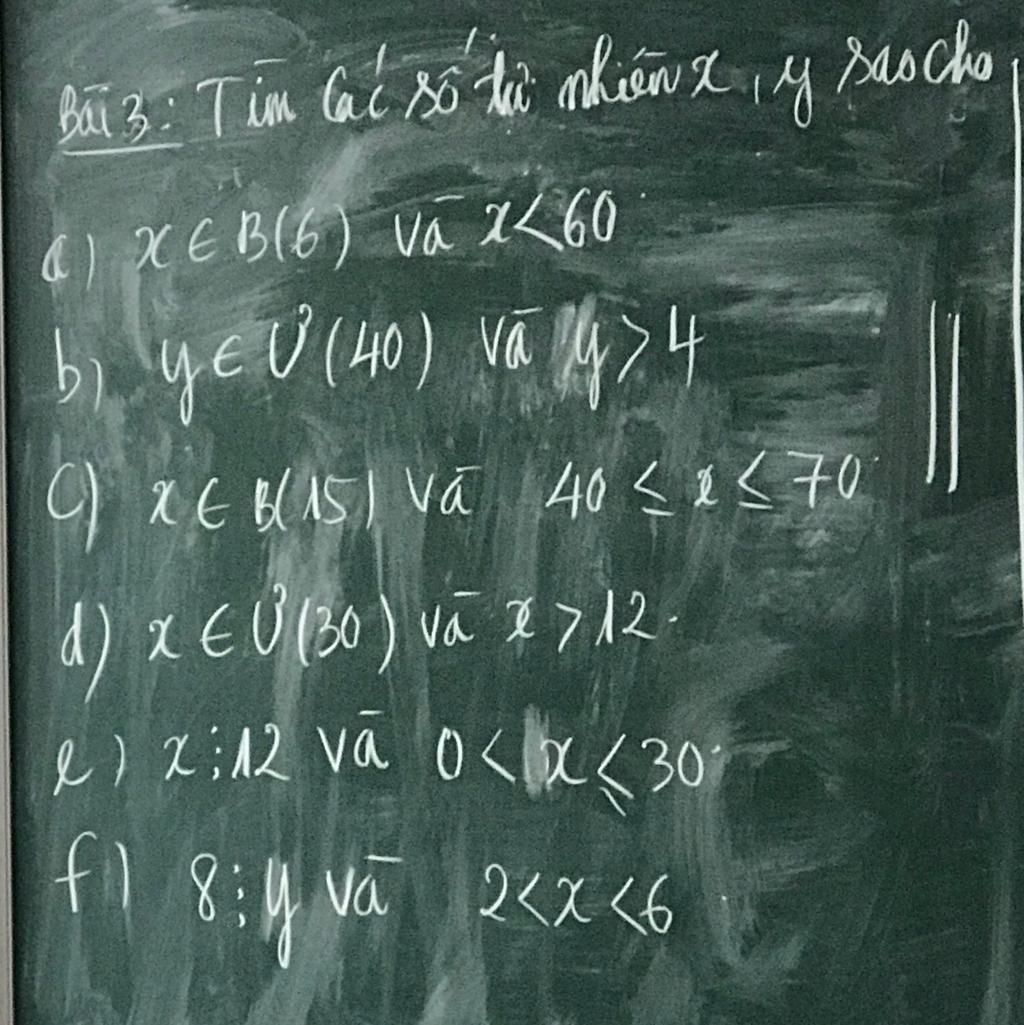 Bài 3: Tìm các số tự nhiên x, y sao cho
a) x ∈ B(6) và x < 60
b) y ∈ Ư(40) và y > 4
c) x ∈ B(15) và 40 ≤ x ≤ 70
d) x ∈ Ư(30) và x > 12.
e) x ⋮ 12 và 0 < x ≤ 30
f) 8 ⋮ y và 2 < x < 6